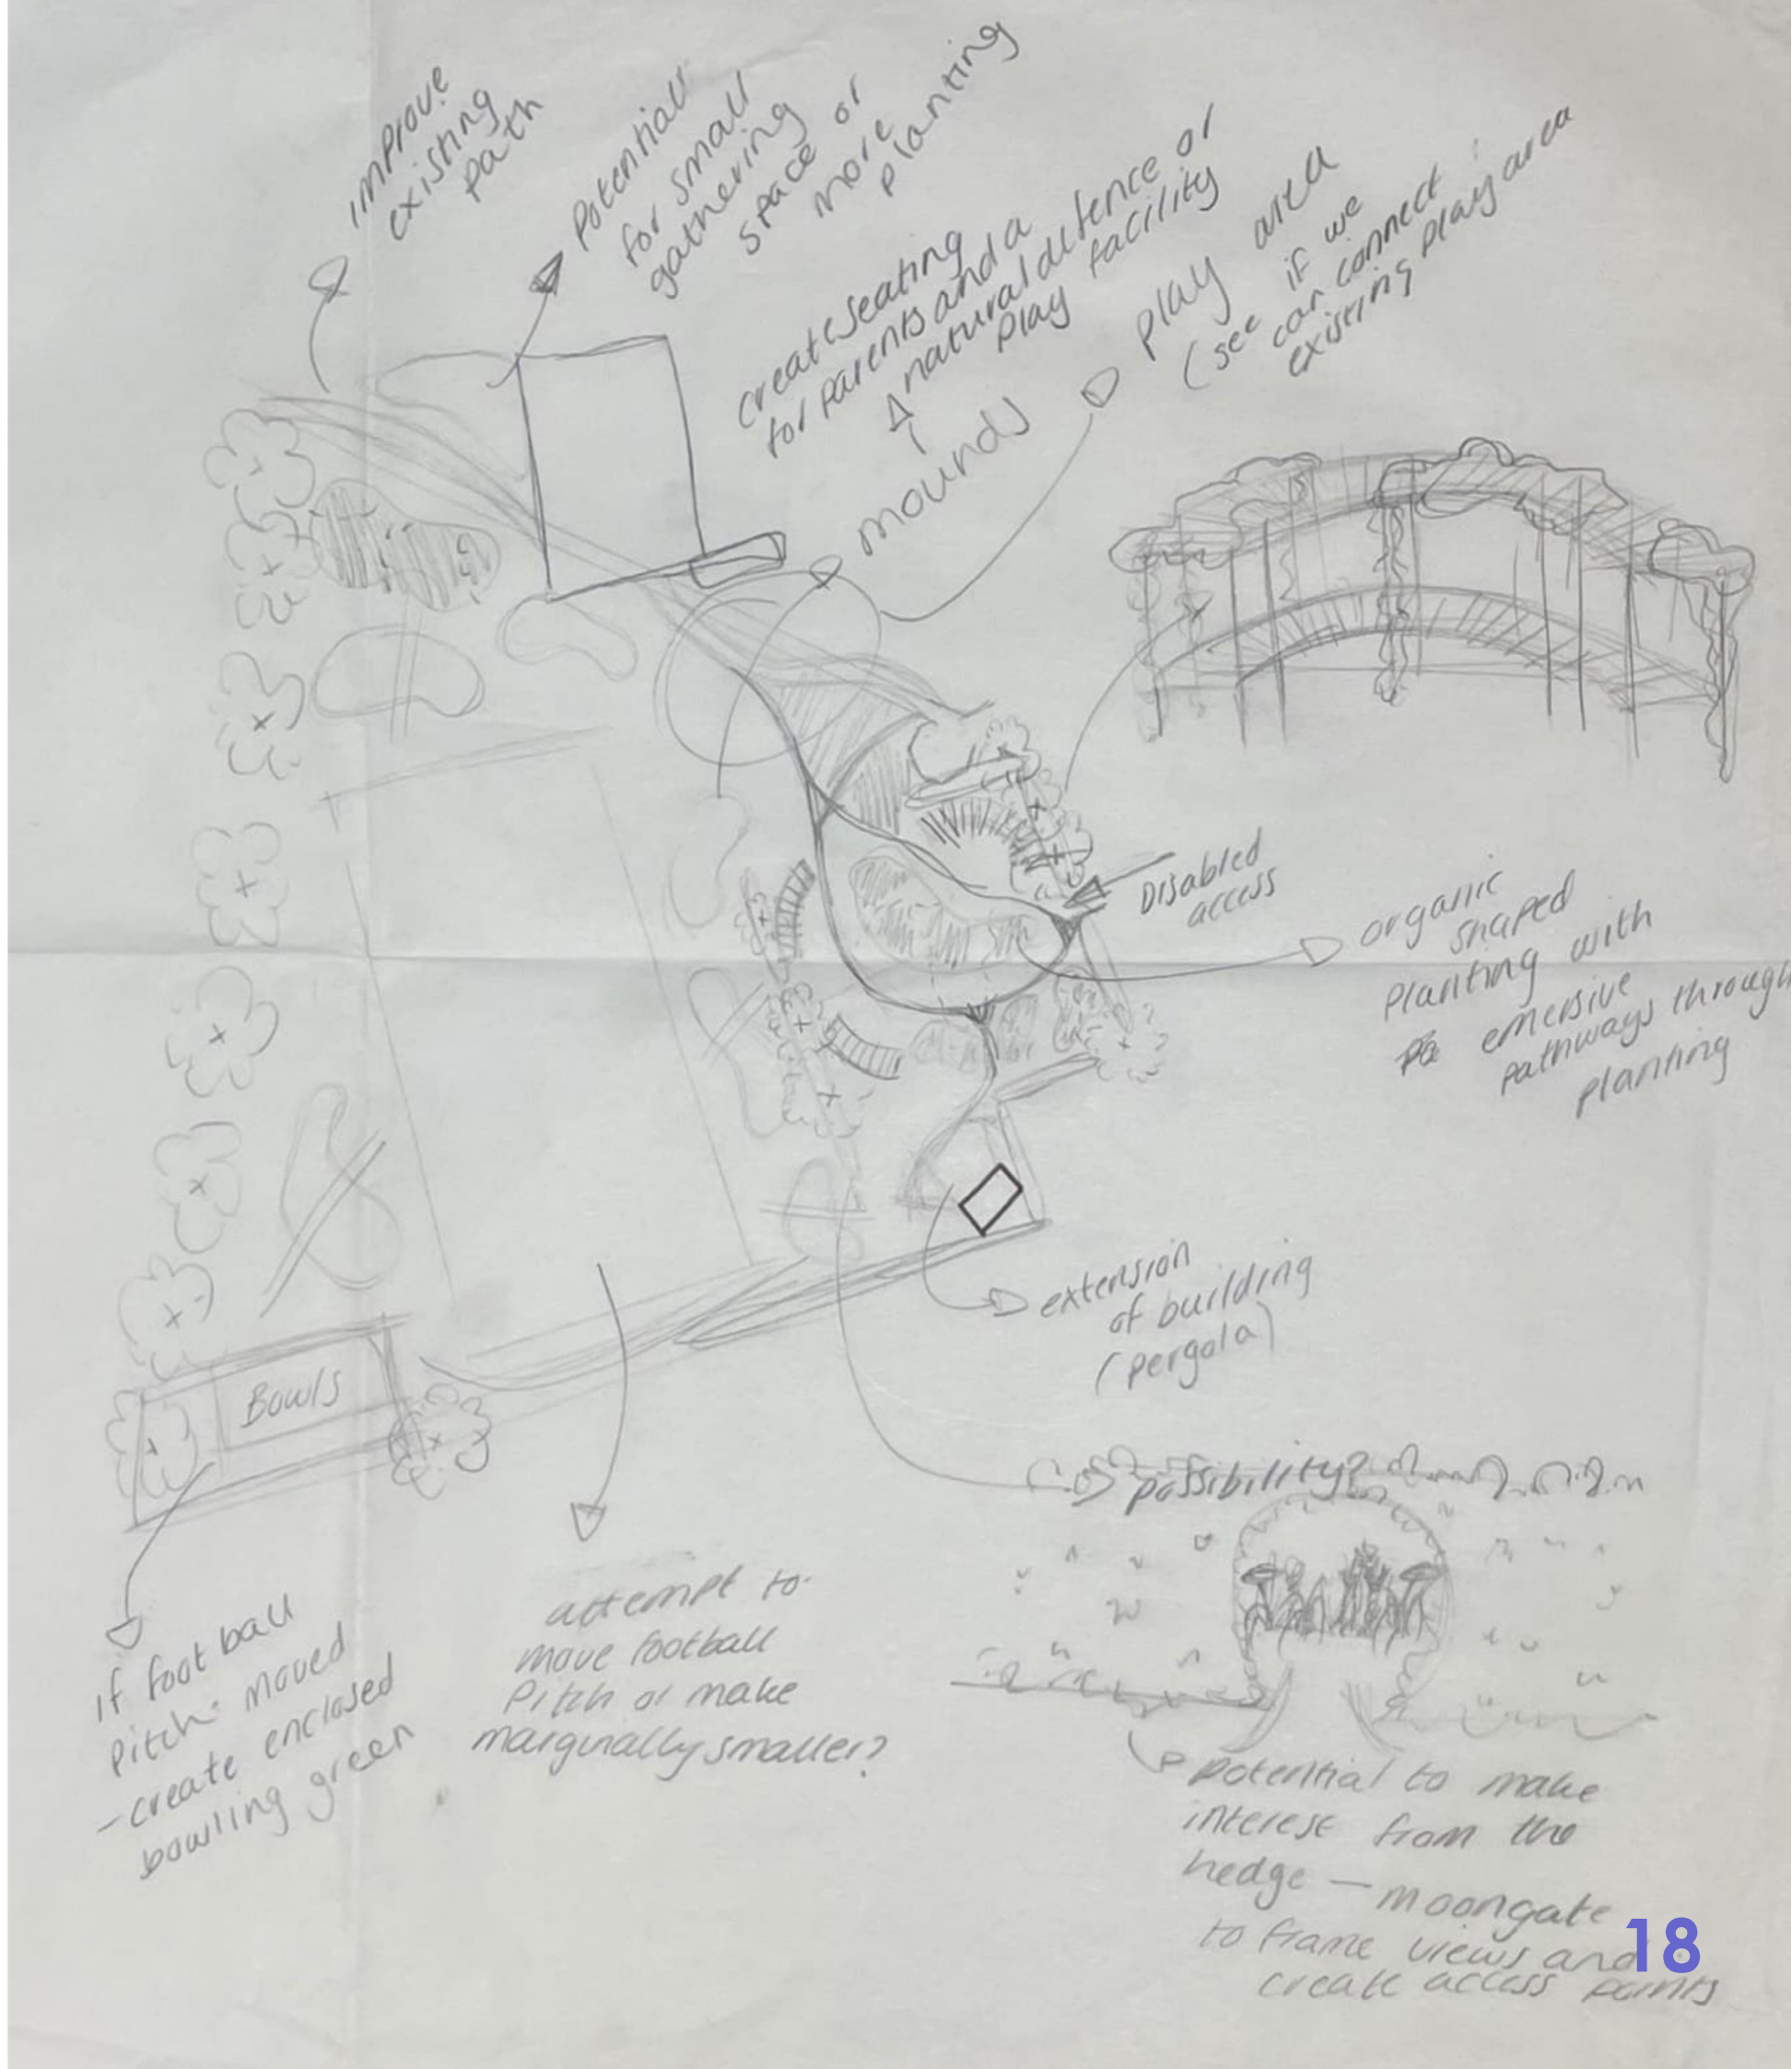 improve
existing
path
Potentiall
for small
gathering
space or
more
planting
create seating
for parents and a
natural defence or
play facility
mounds
play area
(see if we
can connect
existing play area
Disabled
access
organic
shaped
planting with
pa emersive
pathways through
planting
extension
of building
(pergola)
Bowls
possibility?
If football
pitch moved
- create enclosed
bowling green
attempt to
move football
Pitch or make
marginally smaller?
potential to make
interest from the
hedge - moongate
to frame views and
create access points
18